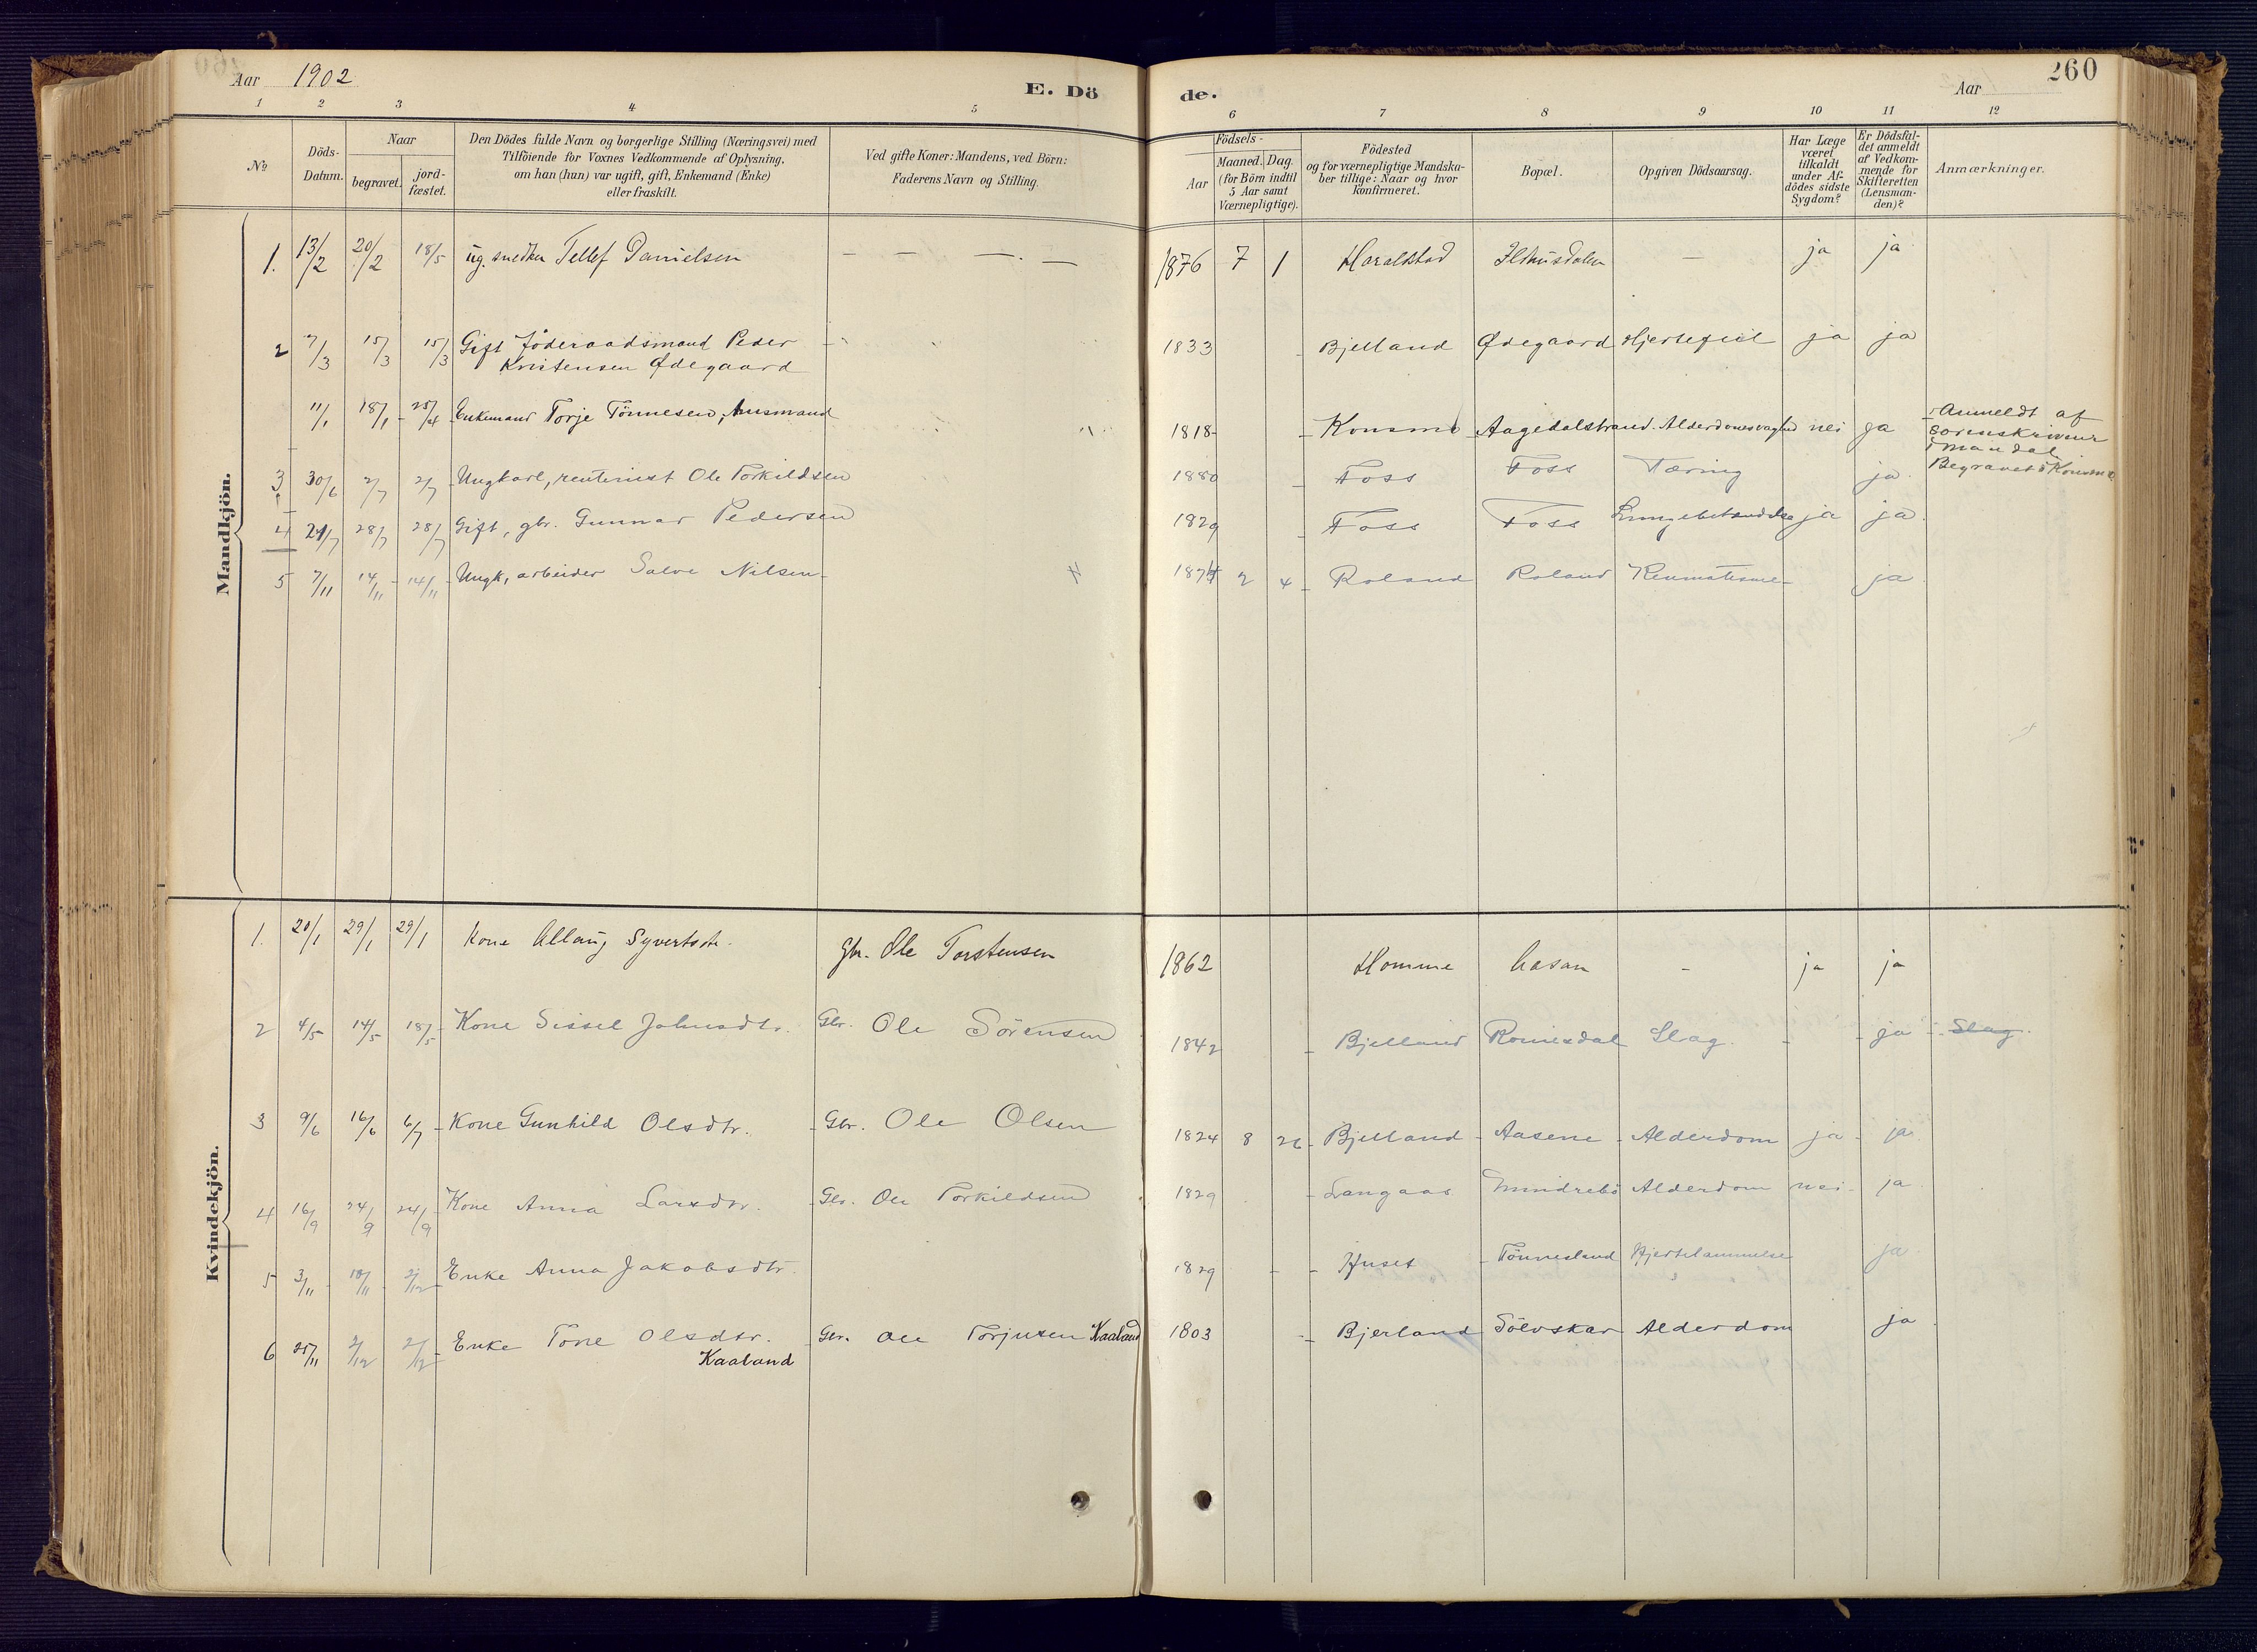 Aar 1902
E. Dö
de.
Aar
260
1 2 3 4 5 6 7 8 9 10 11 12
No
Döds-Datum.
Naar
begravet.
jord-fæstet.
Den Dödes fulde Navn og borgerlige Stilling (Næringsvei) med
Tilföiende for Voxnes Vedkommende af Oplysning,
om han (hun) var ugift, gift, Enkemand (Enke)
eller fraskilt.
Ved gifte Koner: Mandens, ved Börn:
Faderens Navn og Stilling.
Födsels-
Aar
Maaned. Dag.
(for Börn indtil
5 Aar samt
Værnepligtige).
Födested
og for værnepligtige Mandska-
ber tillige: Naar og hvor
konfirmeret.
Bopæl.
Opgiven Dödsaarsag.
Har Læge
været
tilkaldt
under Af-
dödes sidste
Sygdom?
Er Dödsfal-
det anmeldt
af Vedkom-
mende for
Skifteretten
(Lensman-
den)?
Anmærkninger.
Mandkjön.
1. 13/2 20/2 18/5 ug. snedker Tellef Danielsen — — — — 1876 7 1 Haralstad — ja ja
2 7/3 15/3 15/3 Gift Föderaadsmand Peder
Kristensen Ødegaard 1833 Bjelland Ødegaard Hjertefeil ja ja
11/1 18/1 25/4 Enkemand Torje Tönnesen, Husmand 1818 Konsmo Aagedalstrand Alderdomssvaghed nei ja Anmeldt af
sorenskriveren
i Mandal
Begravet i Konsmo
3 30/6 2/7 2/7 Ungkarl, rentenist Ole Torkildsen 1880 Foss Foss Tæring ja
4 21/7 28/7 28/7 Gift, gbr. Gunnar Pedersen 1829 Foss Foss Lungebetændelse ja ja
5 7/11 14/11 14/11 Ungk, arbeider Salve Nilsen 2 4 Roland Roland Reumatisme ja
Kvindekjön.
1. 20/1 29/1 29/1 Kone Allaug Syvertsdtr. Gbr. Ole Torstensen 1862 Homme Aasan - ja ja
2 4/5 14/5 18/5 Kone Sissel Johnsdtr. Gbr. Ole Sörensen 1842 Bjelland Romesdal Slag - ja Slag.
3 9/6 16/6 6/7 Kone Gunhild Olsdtr. Gbr. Ole Olsen 1824 8 26 Bjelland Aasene Alderdom ja ja
4 16/9 24/9 24/9 Kone Anna Larsdtr. Gbr. Ole Torkildsen 1829 Langaas Mindrebö Alderdom nei ja
5 3/11 10/11 2/12 Enke Anna Jakobsdtr. 1829 Huset Tönnesland Hjertelammelse ja
6 25/11 2/12 2/12 Enke Tone Olsdtr.
Kaaland Gbr. Ole Torjusen Kaaland 1803 Bjerland Sölvskar Alderdom ja